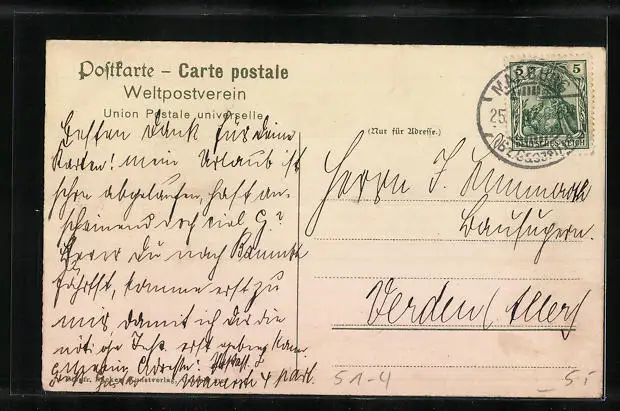 Postkarte – Carte postale
Weltpostverein
Union Postale universelle
(Nur für Adresse.)
5
DEUTSCHES REICH
MARBURG
25.
Besten Dank für Deine
Karten! mein Urlaub ist
schon abgelaufen, hast an-
scheinend doch viel G?
Bevor Du nach
fährst, komme erst zu
mir, damit ich Dir die
nötige erst geben kann
Adresse:
Herrn J.
Verden (Aller)
51-4
5,-